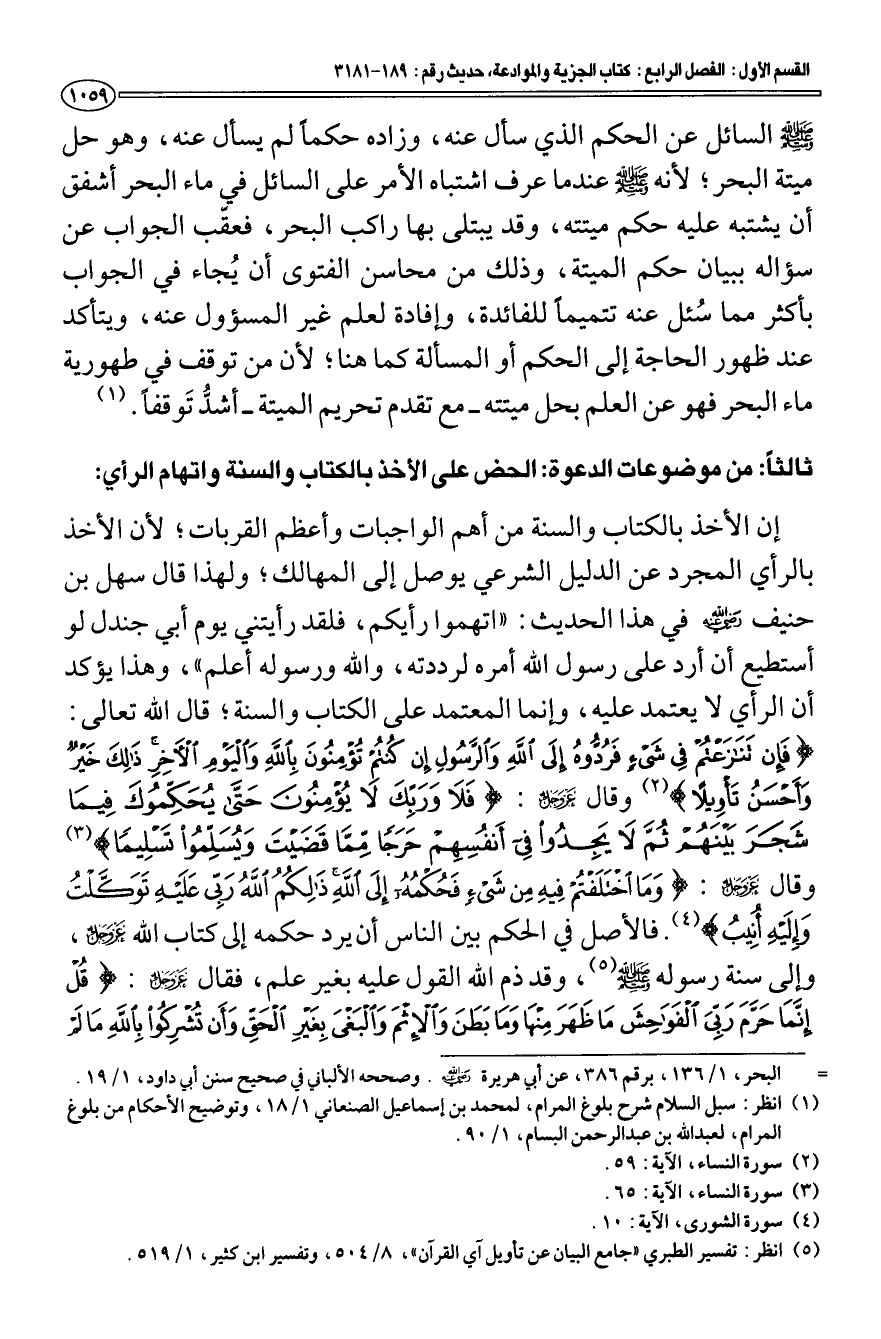 القسم الأول: الفصل الرابع: كتاب الجزية والموادعة، حديث رقم: ١٨٩-٣١٨١
١٠٥٩
ﷺ السائل عن الحكم الذي سأل عنه، وزاده حكماً لم يسأل عنه، وهو حل
ميتة البحر؛ لأنه ﷺ عندما عرف اشتباه الأمر على السائل في ماء البحر أشفق
أن يشتبه عليه حكم ميتته، وقد يبتلى بها راكب البحر، فعقّب الجواب عن
سؤاله ببيان حكم الميتة، وذلك من محاسن الفتوى أن يُجاء في الجواب
بأكثر مما سُئل عنه تتميماً للفائدة، وإفادة لعلم غير المسؤول عنه، ويتأكد
عند ظهور الحاجة إلى الحكم أو المسألة كما هنا؛ لأن من توقف في طهورية
ماء البحر فهو عن العلم بحل ميتته ـ مع تقدم تحريم الميتة ـ أشدُّ تَوقفاً. (١)
ثالثاً: من موضوعات الدعوة: الحض على الأخذ بالكتاب والسنة واتهام الرأي:
إن الأخذ بالكتاب والسنة من أهم الواجبات وأعظم القربات؛ لأن الأخذ
بالرأي المجرد عن الدليل الشرعي يوصل إلى المهالك؛ ولهذا قال سهل بن
حنيف رضي الله عنه في هذا الحديث: «اتهموا رأيكم، فلقد رأيتني يوم أبي جندل لو
أستطيع أن أرد على رسول الله أمره لرددته، والله ورسوله أعلم»، وهذا يؤكد
أن الرأي لا يعتمد عليه، وإنما المعتمد على الكتاب والسنة؛ قال الله تعالى:
﴿ فَإِن تَنَٰزَعْتُمْ فِى شَىْءٍ فَرُدُّوهُ إِلَى ٱللَّهِ وَٱلرَّسُولِ إِن كُنتُمْ تُؤْمِنُونَ بِٱللَّهِ وَٱلْيَوْمِ ٱلْءَاخِرِ ۚ ذَٰلِكَ خَيْرٌ
وَأَحْسَنُ تَأْوِيلًا ﴾(٢) وقال عز وجل : ﴿ فَلَا وَرَبِّكَ لَا يُؤْمِنُونَ حَتَّىٰ يُحَكِّمُوكَ فِيمَا
شَجَرَ بَيْنَهُمْ ثُمَّ لَا يَجِدُوا۟ فِىٓ أَنفُسِهِمْ حَرَجًا مِّمَّا قَضَيْتَ وَيُسَلِّمُوا۟ تَسْلِيمًا ﴾(٣)
وقال عز وجل : ﴿ وَمَا ٱخْتَلَفْتُمْ فِيهِ مِن شَىْءٍ فَحُكْمُهُۥٓ إِلَى ٱللَّهِ ۚ ذَٰلِكُمُ ٱللَّهُ رَبِّى عَلَيْهِ تَوَكَّلْتُ
وَإِلَيْهِ أُنِيبُ ﴾(٤). فالأصل في الحكم بين الناس أن يرد حكمه إلى كتاب الله عز وجل ،
وإلى سنة رسوله ﷺ(٥)، وقد ذم الله القول عليه بغير علم، فقال عز وجل : ﴿ قُلْ
إِنَّمَا حَرَّمَ رَبِّىَ ٱلْفَوَٰحِشَ مَا ظَهَرَ مِنْهَا وَمَا بَطَنَ وَٱلْإِثْمَ وَٱلْبَغْىَ بِغَيْرِ ٱلْحَقِّ وَأَن تُشْرِكُوا۟ بِٱللَّهِ مَا لَمْ
= البحر، ١/ ١٣٦، برقم ٣٨٦، عن أبي هريرة رضي الله عنه . وصححه الألباني في صحيح سنن أبي داود، ١/ ١٩.
(١) انظر: سبل السلام شرح بلوغ المرام، لمحمد بن إسماعيل الصنعاني ١/ ١٨، وتوضيح الأحكام من بلوغ
المرام، لعبدالله بن عبدالرحمن البسام، ١/ ٩٠.
(٢) سورة النساء، الآية: ٥٩.
(٣) سورة النساء، الآية: ٦٥.
(٤) سورة الشورى، الآية: ١٠.
(٥) انظر: تفسير الطبري «جامع البيان عن تأويل آي القرآن»، ٨/ ٥٠٤، وتفسير ابن كثير، ١/ ٥١٩.